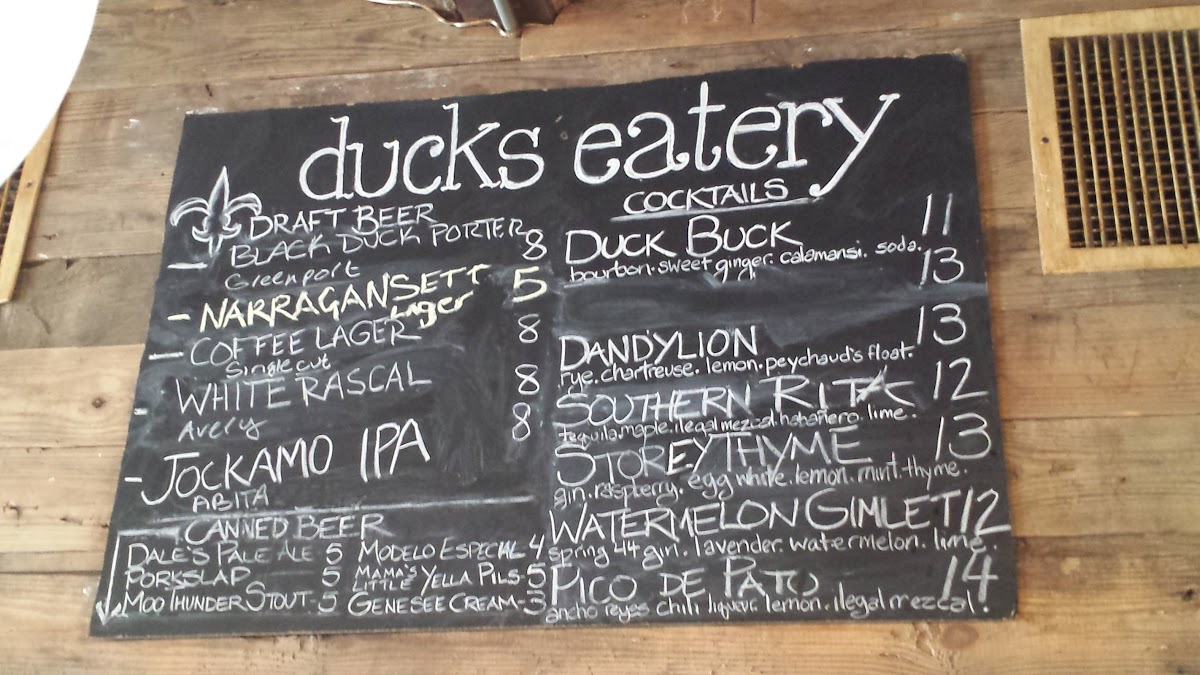 ducks eatery
DRAFT BEER
- BLACK DUCK PORTER 8
Greenport
- NARRAGANSETT 5
Lager
- COFFEE LAGER 8
Singlecut
- WHITE RASCAL 8
Avery 8
- JOCKAMO IPA
ABITA
CANNED BEER
DALE'S PALE ALE 5
PORKSLAP 5
MOO THUNDER STOUT - 5
MODELO ESPECIAL 4
MAMA'S LITTLE YELLA PILS - 5
GENESEE CREAM - 3
COCKTAILS
DUCK BUCK 11
bourbon. sweet ginger. calamansi. soda.
13
DANDYLION 13
rye. chartreuse. lemon. peychaud's float.
SOUTHERN RITA 12
tequila. maple. ilegal mezcal. habañero. lime.
STOREYTHYME 13
gin. raspberry. egg white. lemon. mint. thyme.
WATERMELON GIMLET 12
spring 44 gin. lavender. watermelon. lime.
PICO DE PATO 14
ancho reyes chili liqueur. lemon. ilegal mezcal.